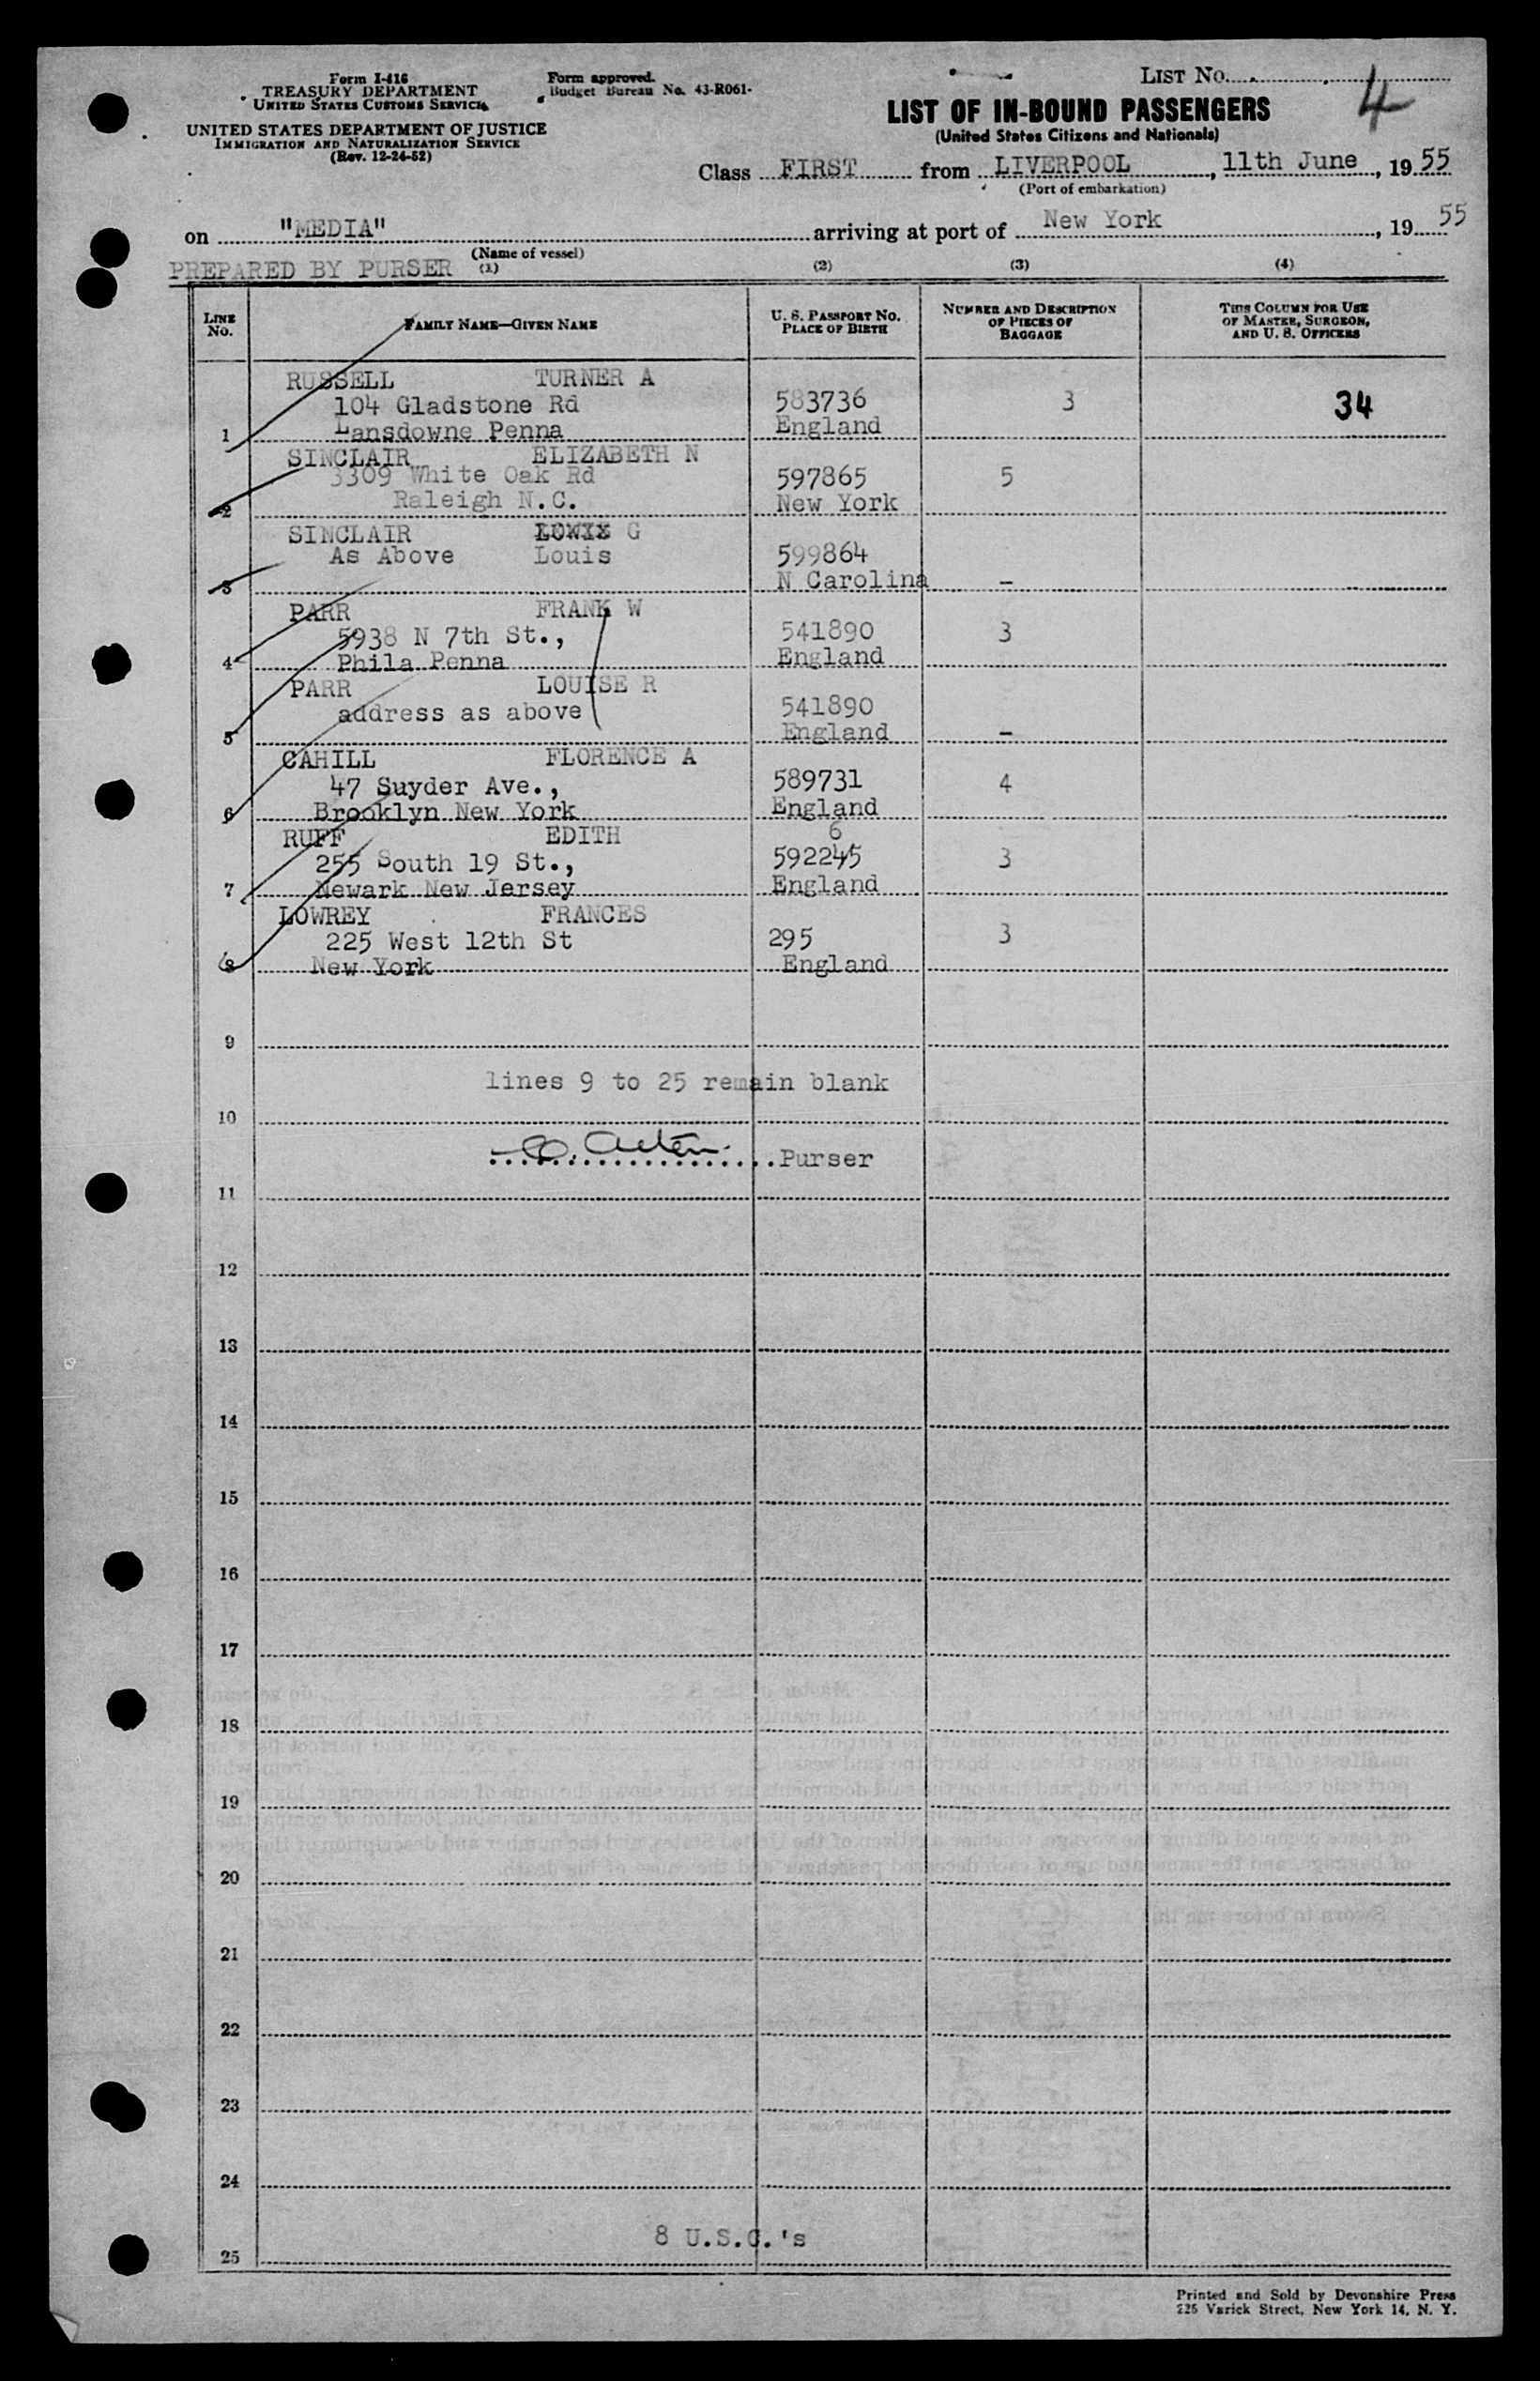 Form I-416
TREASURY DEPARTMENT
UNITED STATES CUSTOMS SERVICE
UNITED STATES DEPARTMENT OF JUSTICE
IMMIGRATION AND NATURALIZATION SERVICE
(Rev. 12-24-52)
Form approved.
Budget Bureau No. 43-R061-
LIST NO.
4
LIST OF IN-BOUND PASSENGERS
(United States Citizens and Nationals)
Class FIRST from LIVERPOOL, 11th June, 1955
(Port of embarkation)
on "MEDIA" arriving at port of New York, 19 55
(Name of vessel)
PREPARED BY PURSER (1) (2) (3) (4)
LINE No. FAMILY NAME—GIVEN NAME U. S. PASSPORT NO. PLACE OF BIRTH NUMBER AND DESCRIPTION OF PIECES OF BAGGAGE THIS COLUMN FOR USE OF MASTER, SURGEON, AND U. S. OFFICERS
RUSSELL TURNER A
104 Gladstone Rd 583736 3 34
1 Lansdowne Penna England
SINCLAIR ELIZABETH N
3309 White Oak Rd 597865 5
2 Raleigh N.C. New York
SINCLAIR G
As Above Louis 599864
3 N Carolina –
PARR FRANK W
5938 N 7th St., 541890 3
4 Phila Penna England
PARR LOUISE R
address as above 541890
5 England –
CAHILL FLORENCE A
47 Suyder Ave., 589731 4
6 Brooklyn New York England
RUFF EDITH 6
255 South 19 St., 592245 3
7 Newark New Jersey England
LOWREY FRANCES
225 West 12th St 295 3
8 New York England
9
lines 9 to 25 remain blank
10
Purser
11
12
13
14
15
16
17
18
19
20
21
22
23
24
8 U.S.C.'s
25
Printed and Sold by Devonshire Press
225 Varick Street, New York 14, N. Y.